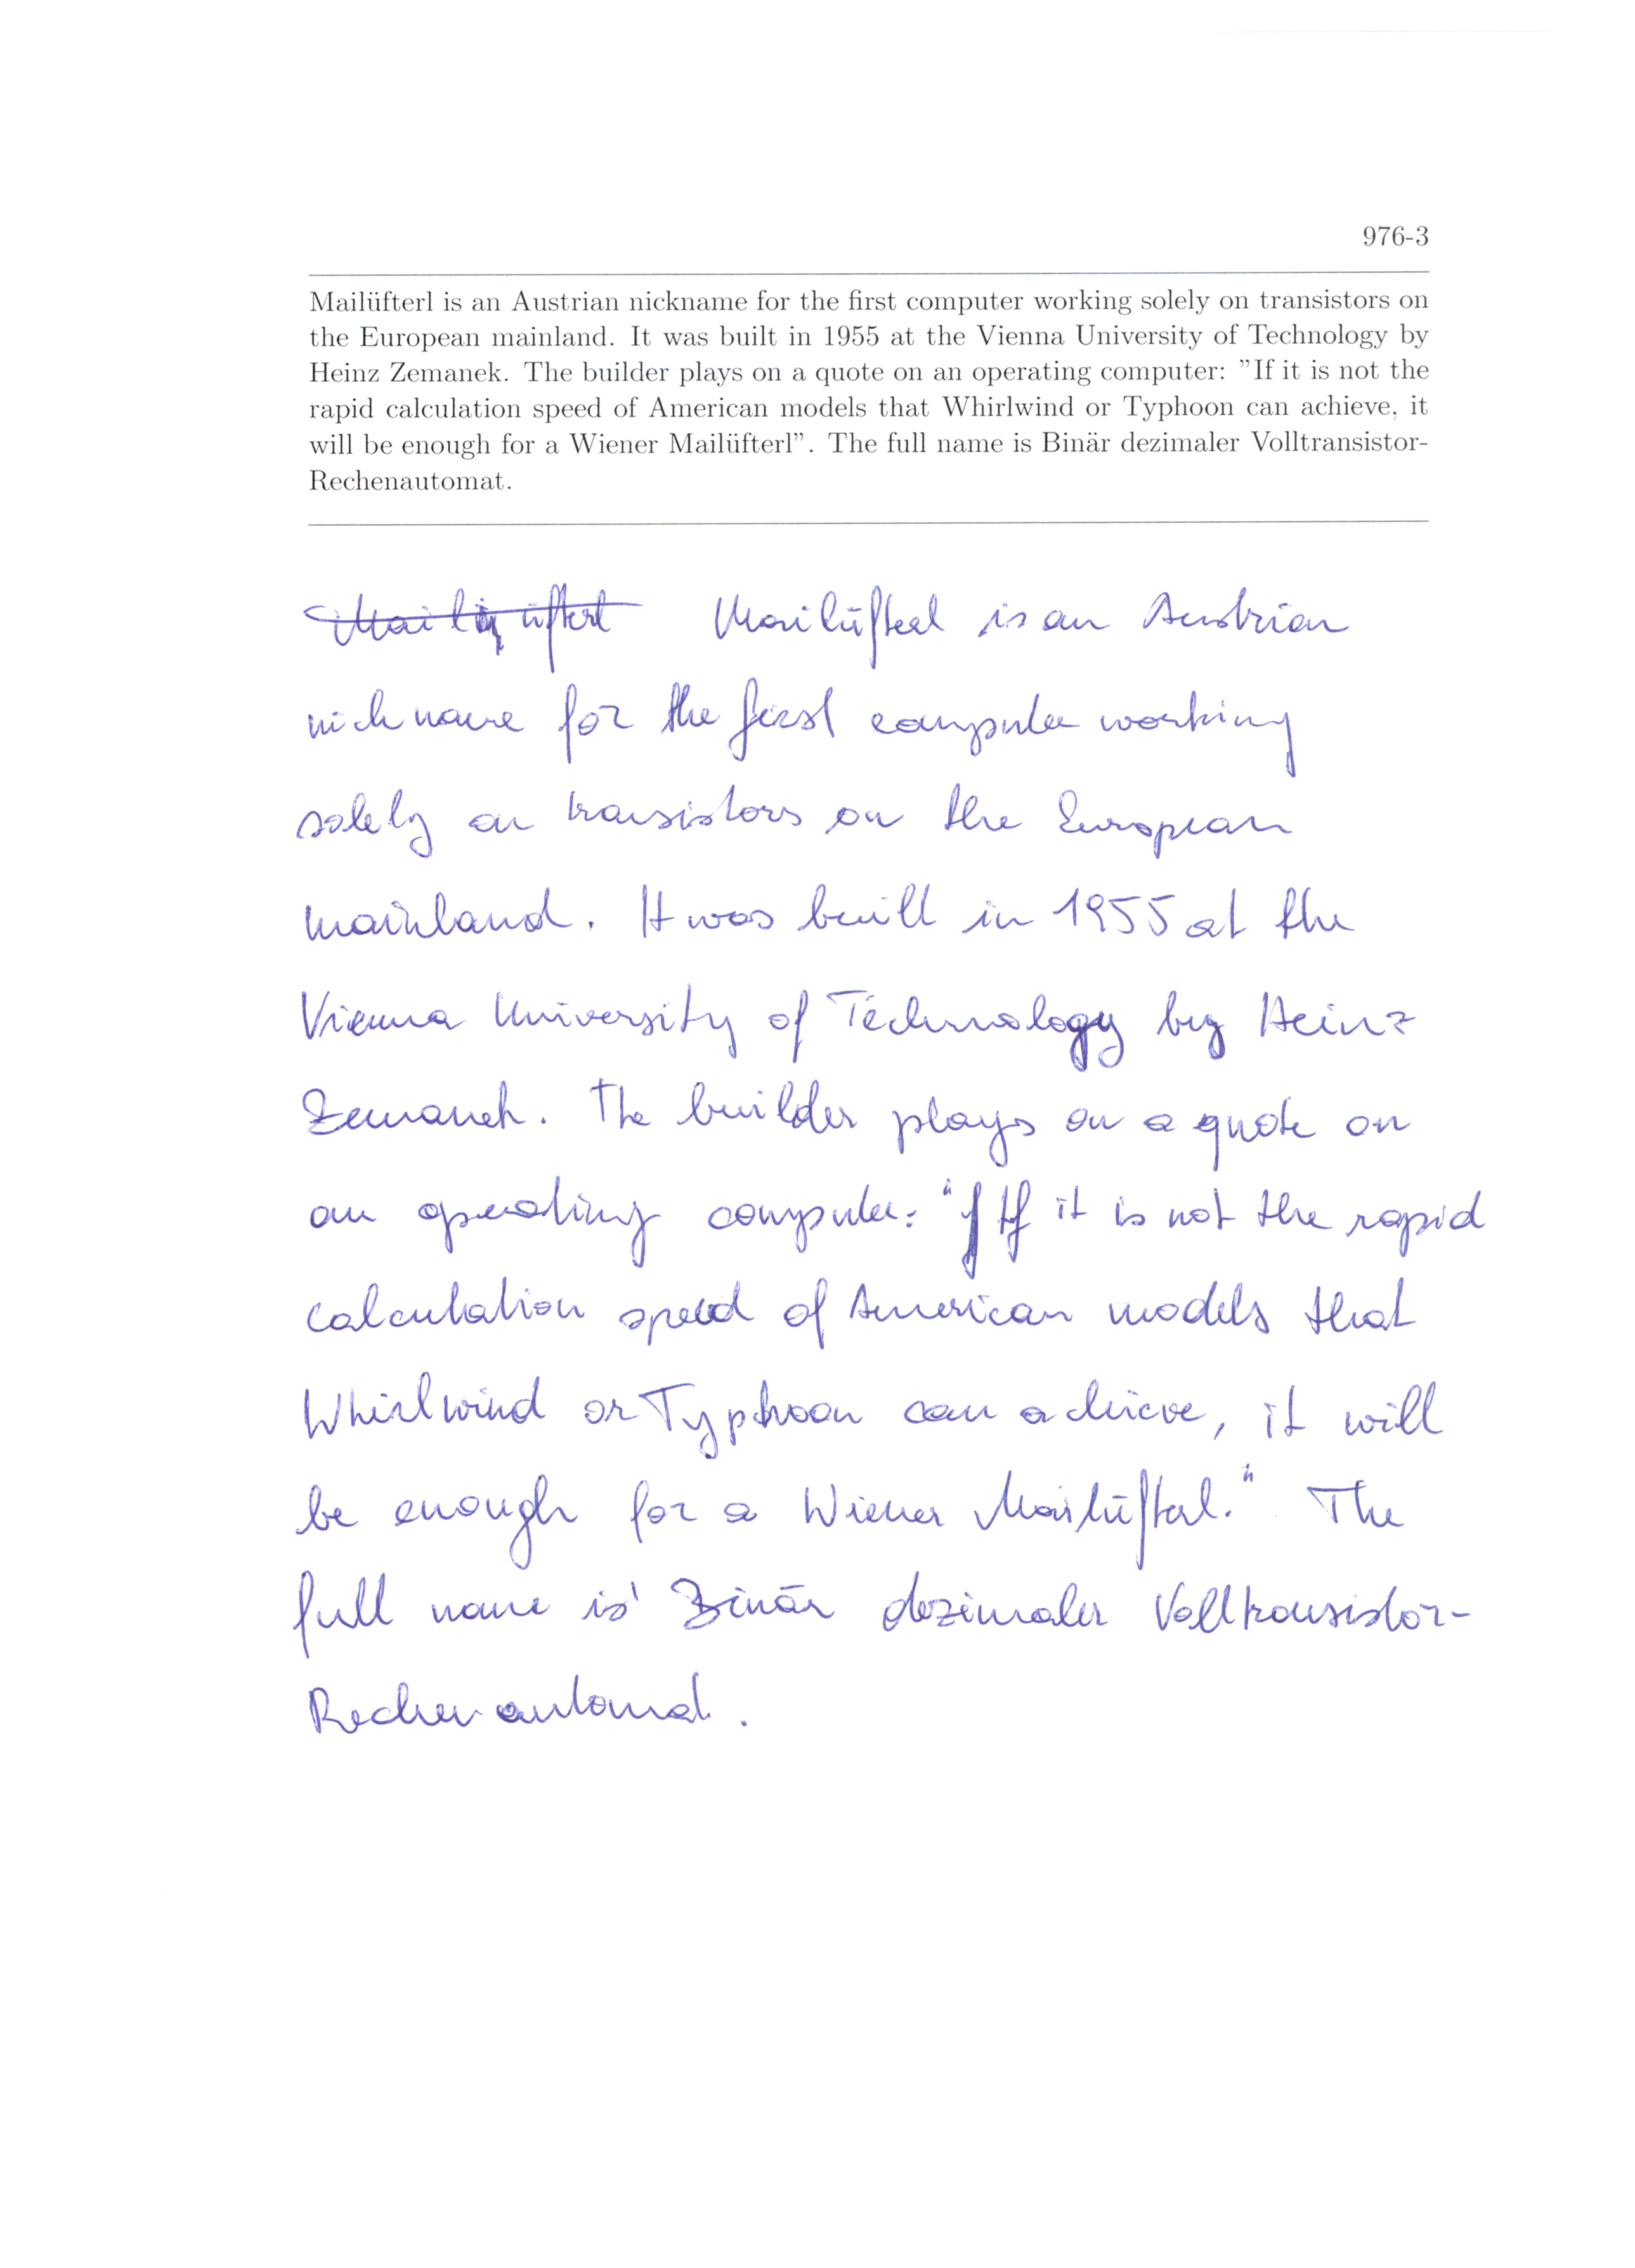 976-3
Mailüfterl is an Austrian nickname for the first computer working solely on transistors on
the European mainland. It was built in 1955 at the Vienna University of Technology by
Heinz Zemanek. The builder plays on a quote on an operating computer: "If it is not the
rapid calculation speed of American models that Whirlwind or Typhoon can achieve, it
will be enough for a Wiener Mailüfterl". The full name is Binär dezimaler Volltransistor-
Rechenautomat.
Mailüfterl is an Austrian
nickname for the first computer working
solely on transistors on the European
mainland. It was built in 1955 at the
Vienna University of Technology by Heinz
Zemanek. The builder plays on a quote on
an operating computer: "If it is not the rapid
calculation speed of American models that
Whirlwind or Typhoon can achieve, it will
be enough for a Wiener Mailüfterl." The
full name is Binär dezimaler Volltransistor-
Rechenautomat.